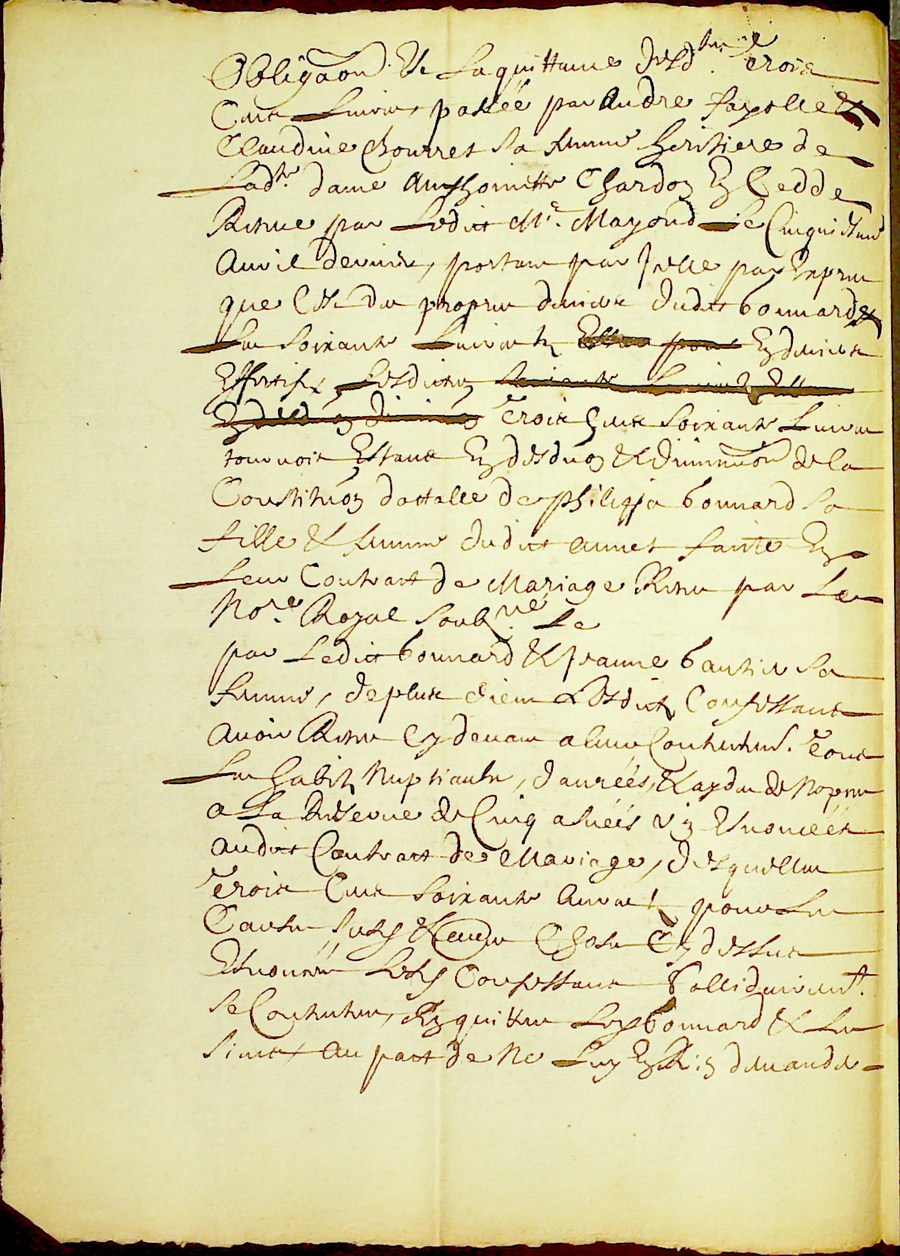 Obligaon. & la quittance desd. trois
Cens Livres, passée par Andre fayolle &
Claudine Chourret sa femme heritiere de
Ladte. dame Anthoinette Chardon En Cedde
Receue par Ledict Me. Mayoud Le Cinquiesme
Auril dernier, portant par Icelle par Exprez
que C'est du propre denier dudict bonnard &
Les soixante Livres En deniers
Effectifz Lesdictes
trois Cens soixante Livres
tournois Estant En desduon & diminuon de la
Constituon dottalle de philippa bonnard sa
fille & femme dudict annet faicte En
Leur Contract de Mariage Receu par Le
Nore. Royal soubzne. Le
par Ledict bonnard & Jeanne bautier sa
femme, de plus Lesdictz Confessant
Avoir Receu Cy devant a leur Contentemt. tous
Les habitz Nuptiaulx, daurées, &
a La Reserve de Cinq asnées vin Enoncées
audict Contract de Mariage, desquelles
trois Cens soixante Livres pour Les
Causes susd. & aultres Choses Cy dessus
Enoncées Lesd. Confessant sollidairemt.
se Contenter, En quitter Led. bonnard & Les
siens, Au pact de Ne Luy En Rien demander